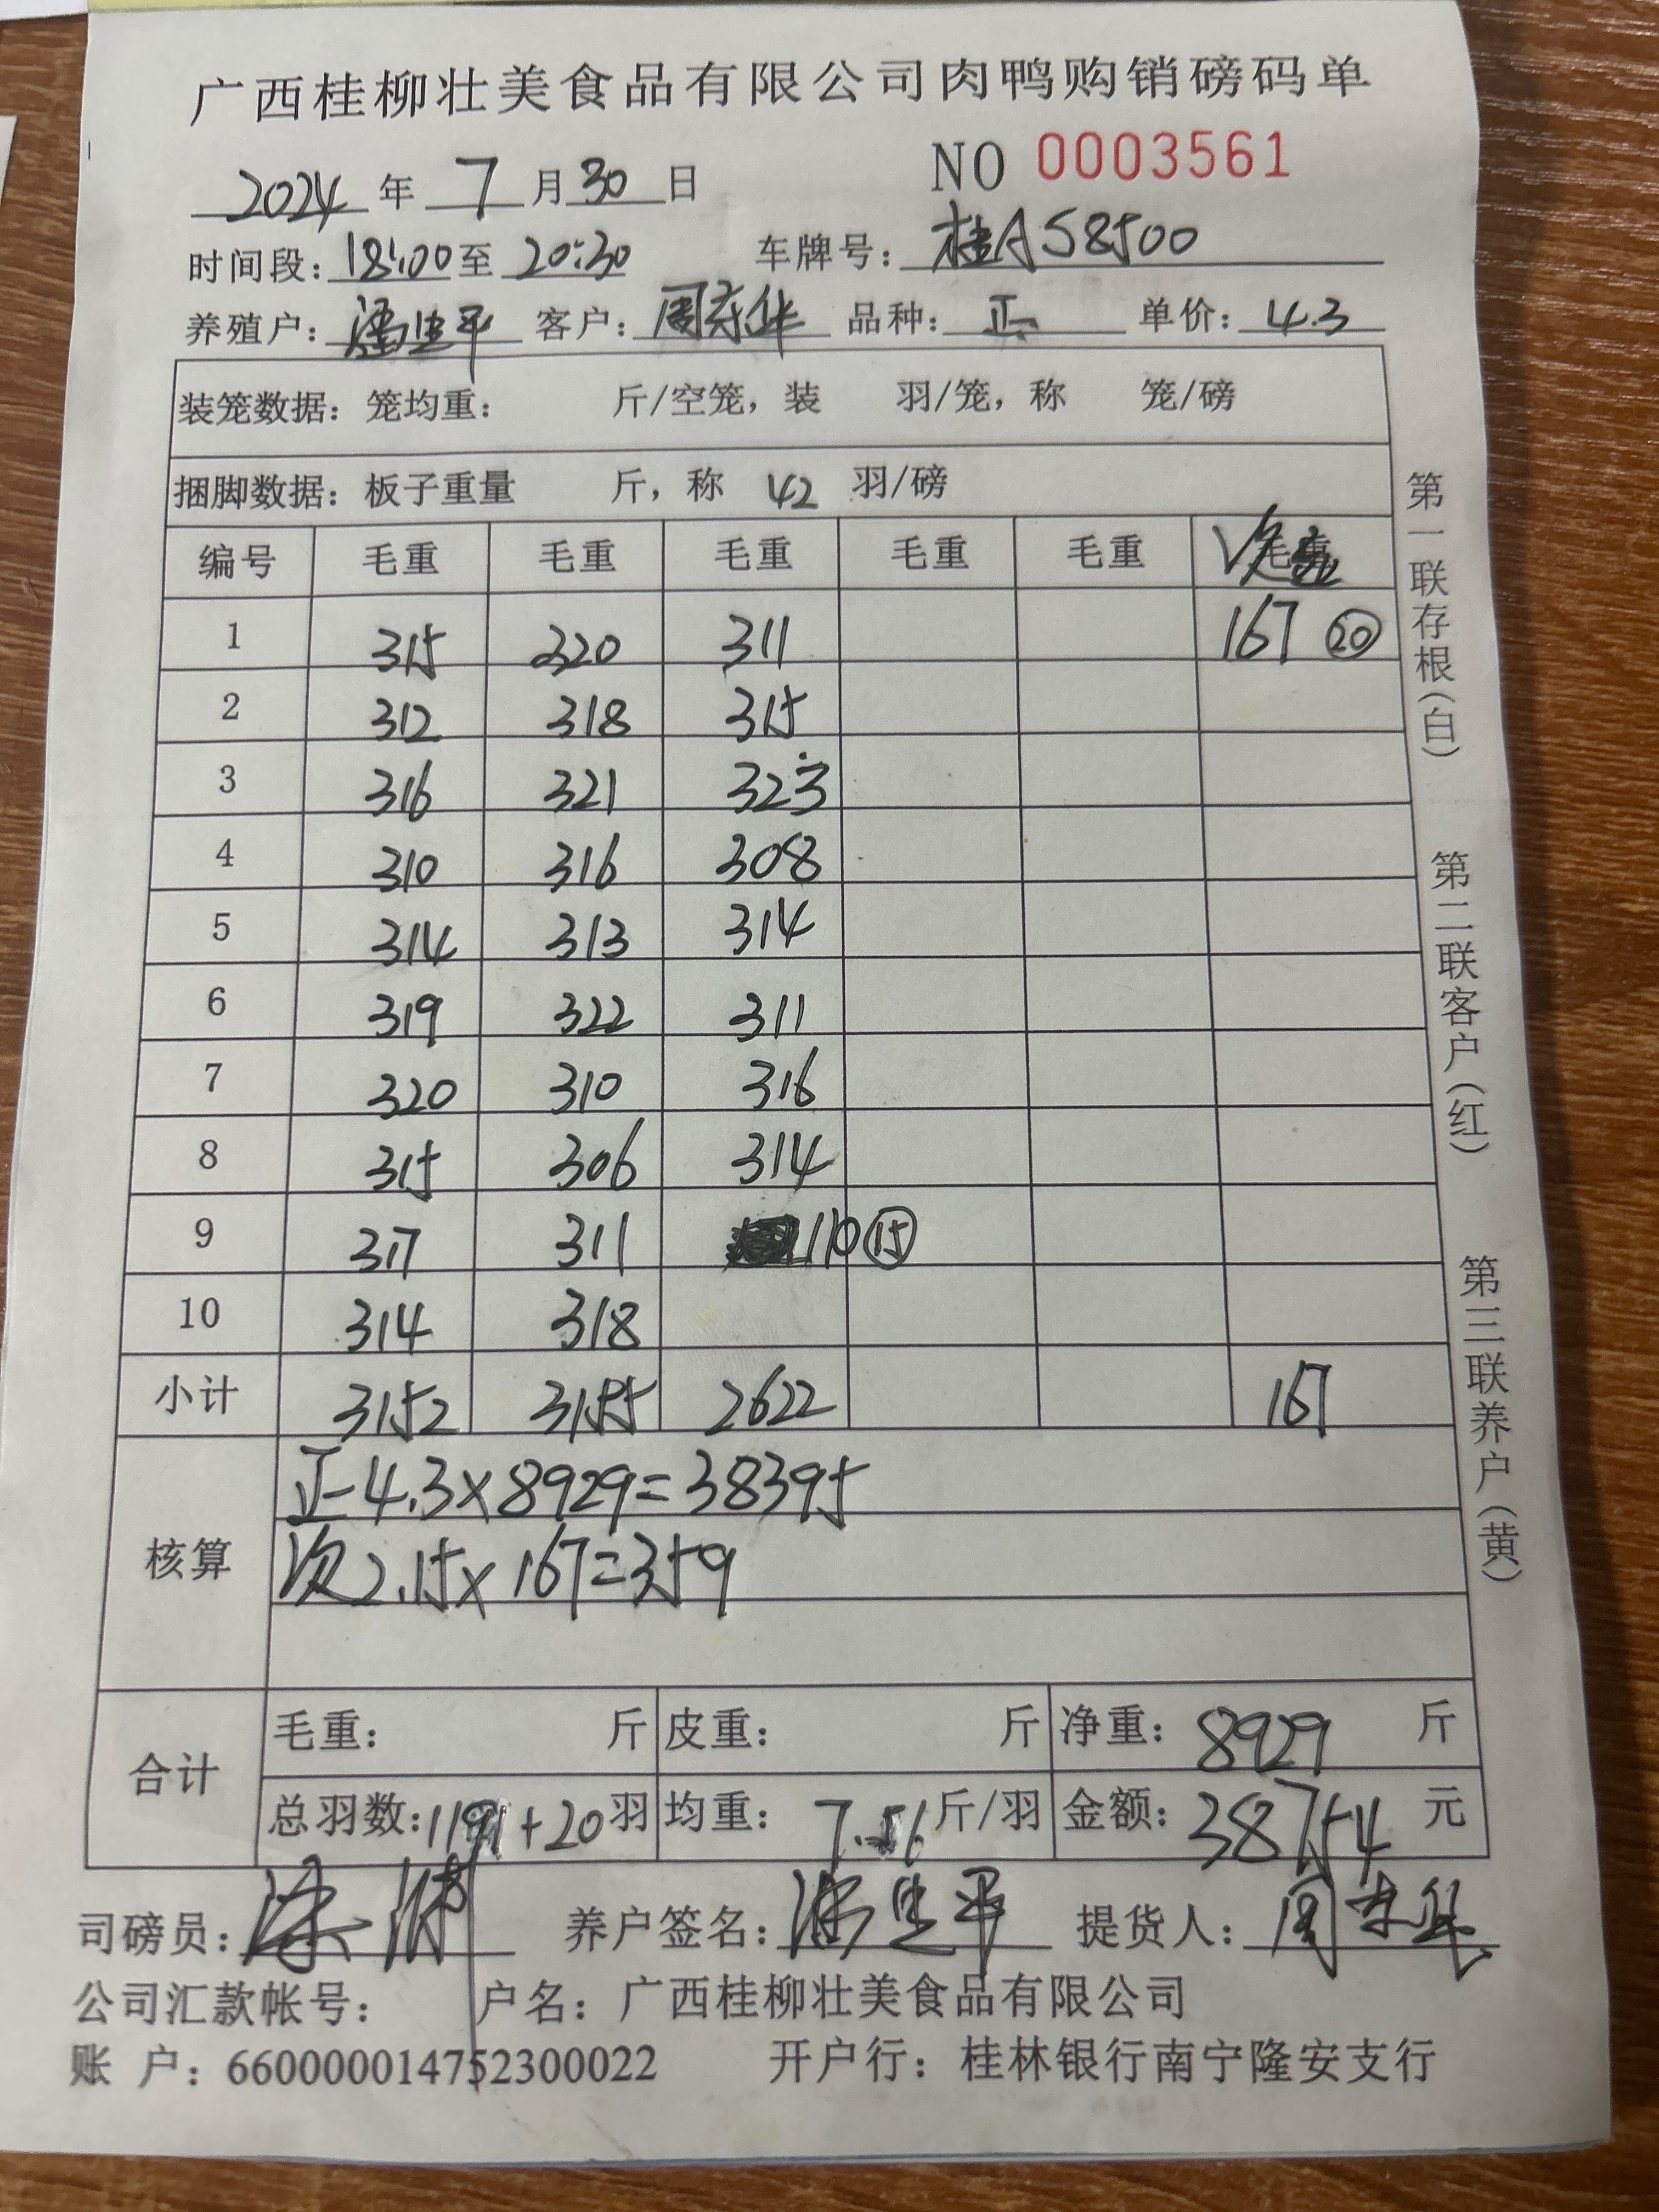 广西桂柳壮美食品有限公司肉鸭购销磅码单
NO 0003561
2024 年 7 月 30 日
时间段: 18:00 至 20:30 车牌号: 桂A58500
养殖户: 潘生平 客户: 周 华 品种: 正 单价: 4.3
装笼数据: 笼均重: 斤/空笼, 装 羽/笼, 称 笼/磅
捆脚数据: 板子重量 斤, 称 42 羽/磅
编号 毛重 毛重 毛重 毛重 毛重 次
1 315 320 311 167 20
2 312 318 315
3 316 321 323
4 310 316 308
5 314 313 314
6 319 322 311
7 320 310 316
8 315 306 314
9 317 311 110 15
10 314 318
小计 3152 3155 2622 167
核算
正-4.3×8929=38395
次2.15×167=359
合计
毛重: 斤 皮重: 斤 净重: 8929 斤
总羽数: 1191+20 羽 均重: 7.56 斤/羽 金额: 38754 元
司磅员: 养户签名: 潘生平 提货人: 周 华
公司汇款帐号: 户名: 广西桂柳壮美食品有限公司
账 户: 660000014752300022 开户行: 桂林银行南宁隆安支行
第一联存根(白)
第二联客户(红)
第三联养户(黄)